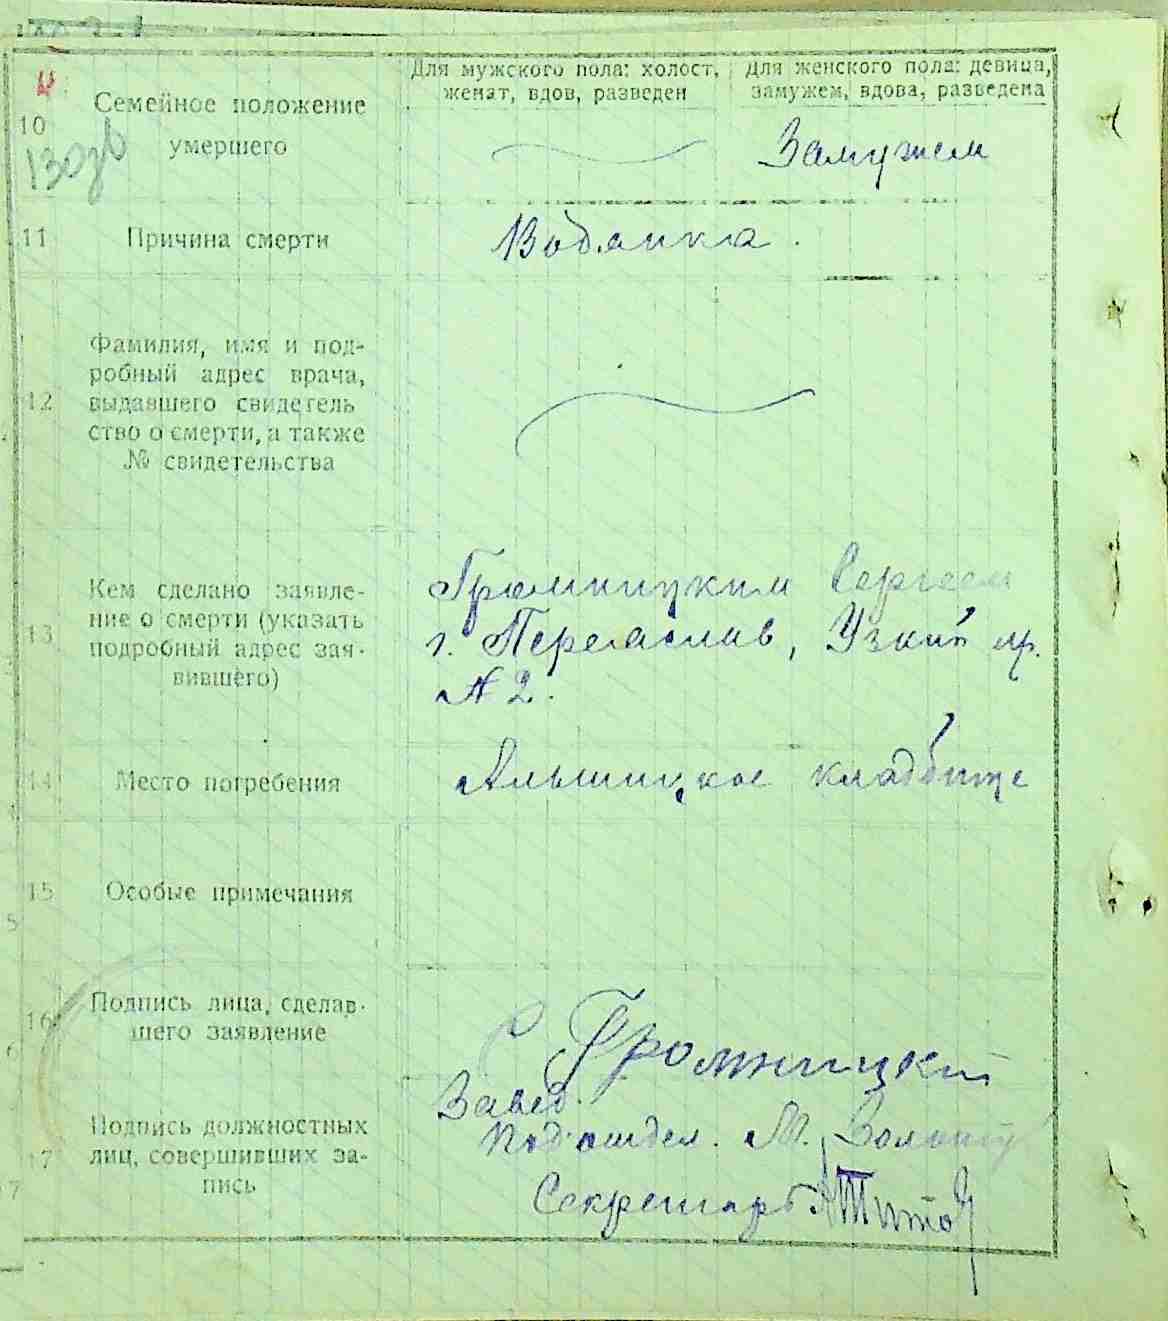 Для мужского пола: холост, женат, вдов, разведен
Для женского пола: девица, замужем, вдова, разведена
10
Семейное положение
умершего
Замужем
11
Причина смерти
Водянка.
12
Фамилия, имя и под-
робный адрес врача,
выдавшего свидетель
ство о смерти, а также
№ свидетельства
13
Кем сделано заявле-
ние о смерти (указать
подробный адрес зая-
вившего)
Громницким Сергеем
г. Переяслав, Узкий пр.
№ 2.
14
Место погребения
Альшицкое кладбище
15
Особые примечания
16
Подпись лица, сделав-
шего заявление
С Громницкий
17
Подпись должностных
лиц, совершивших за-
пись
Завед.
Подотдел. М.
Секретарь Титов